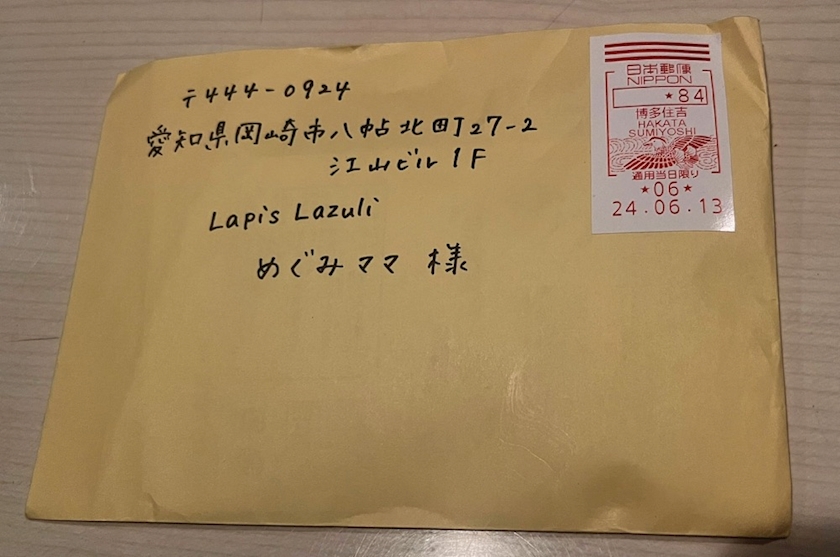 〒444-0924
愛知県岡崎市八帖北町27-2
江山ビル 1F
Lapis Lazuli
めぐみママ 様
日本郵便
NIPPON
★84
博多住吉
HAKATA
SUMIYOSHI
適用当日限り
★06★
24.06.13